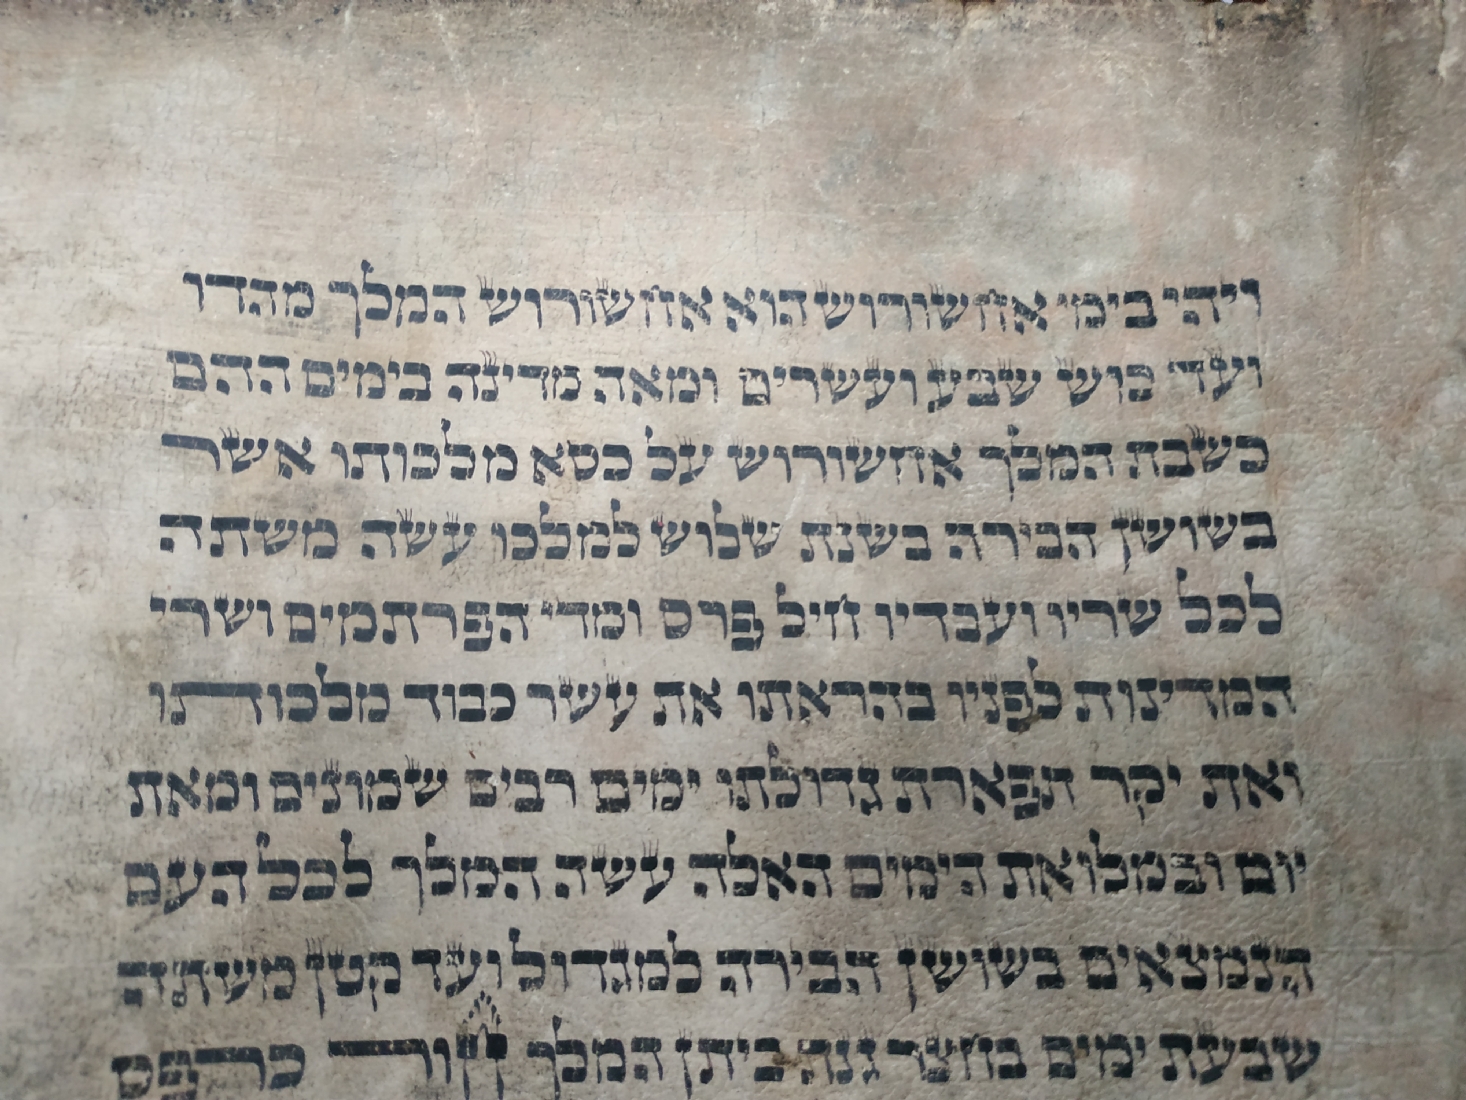 ויהי בימי אחשורוש הוא אחשורוש המלך מהדו
ועד כוש שבע ועשרים ומאה מדינה בימים ההם
כשבת המלך אחשורוש על כסא מלכותו אשר
בשושן הבירה בשנת שלוש למלכו עשה משתה
לכל שריו ועבדיו חיל פרס ומדי הפרתמים ושרי
המדינות לפניו בהראתו את עשר כבוד מלכותו
ואת יקר תפארת גדולתו ימים רבים שמונים ומאת
יום ובמלואת הימים האלה עשה המלך לכל העם
הנמצאים בשושן הבירה למגדול ועד קטן משתה
שבעת ימים בחצר גנת ביתן המלך חור כרפס